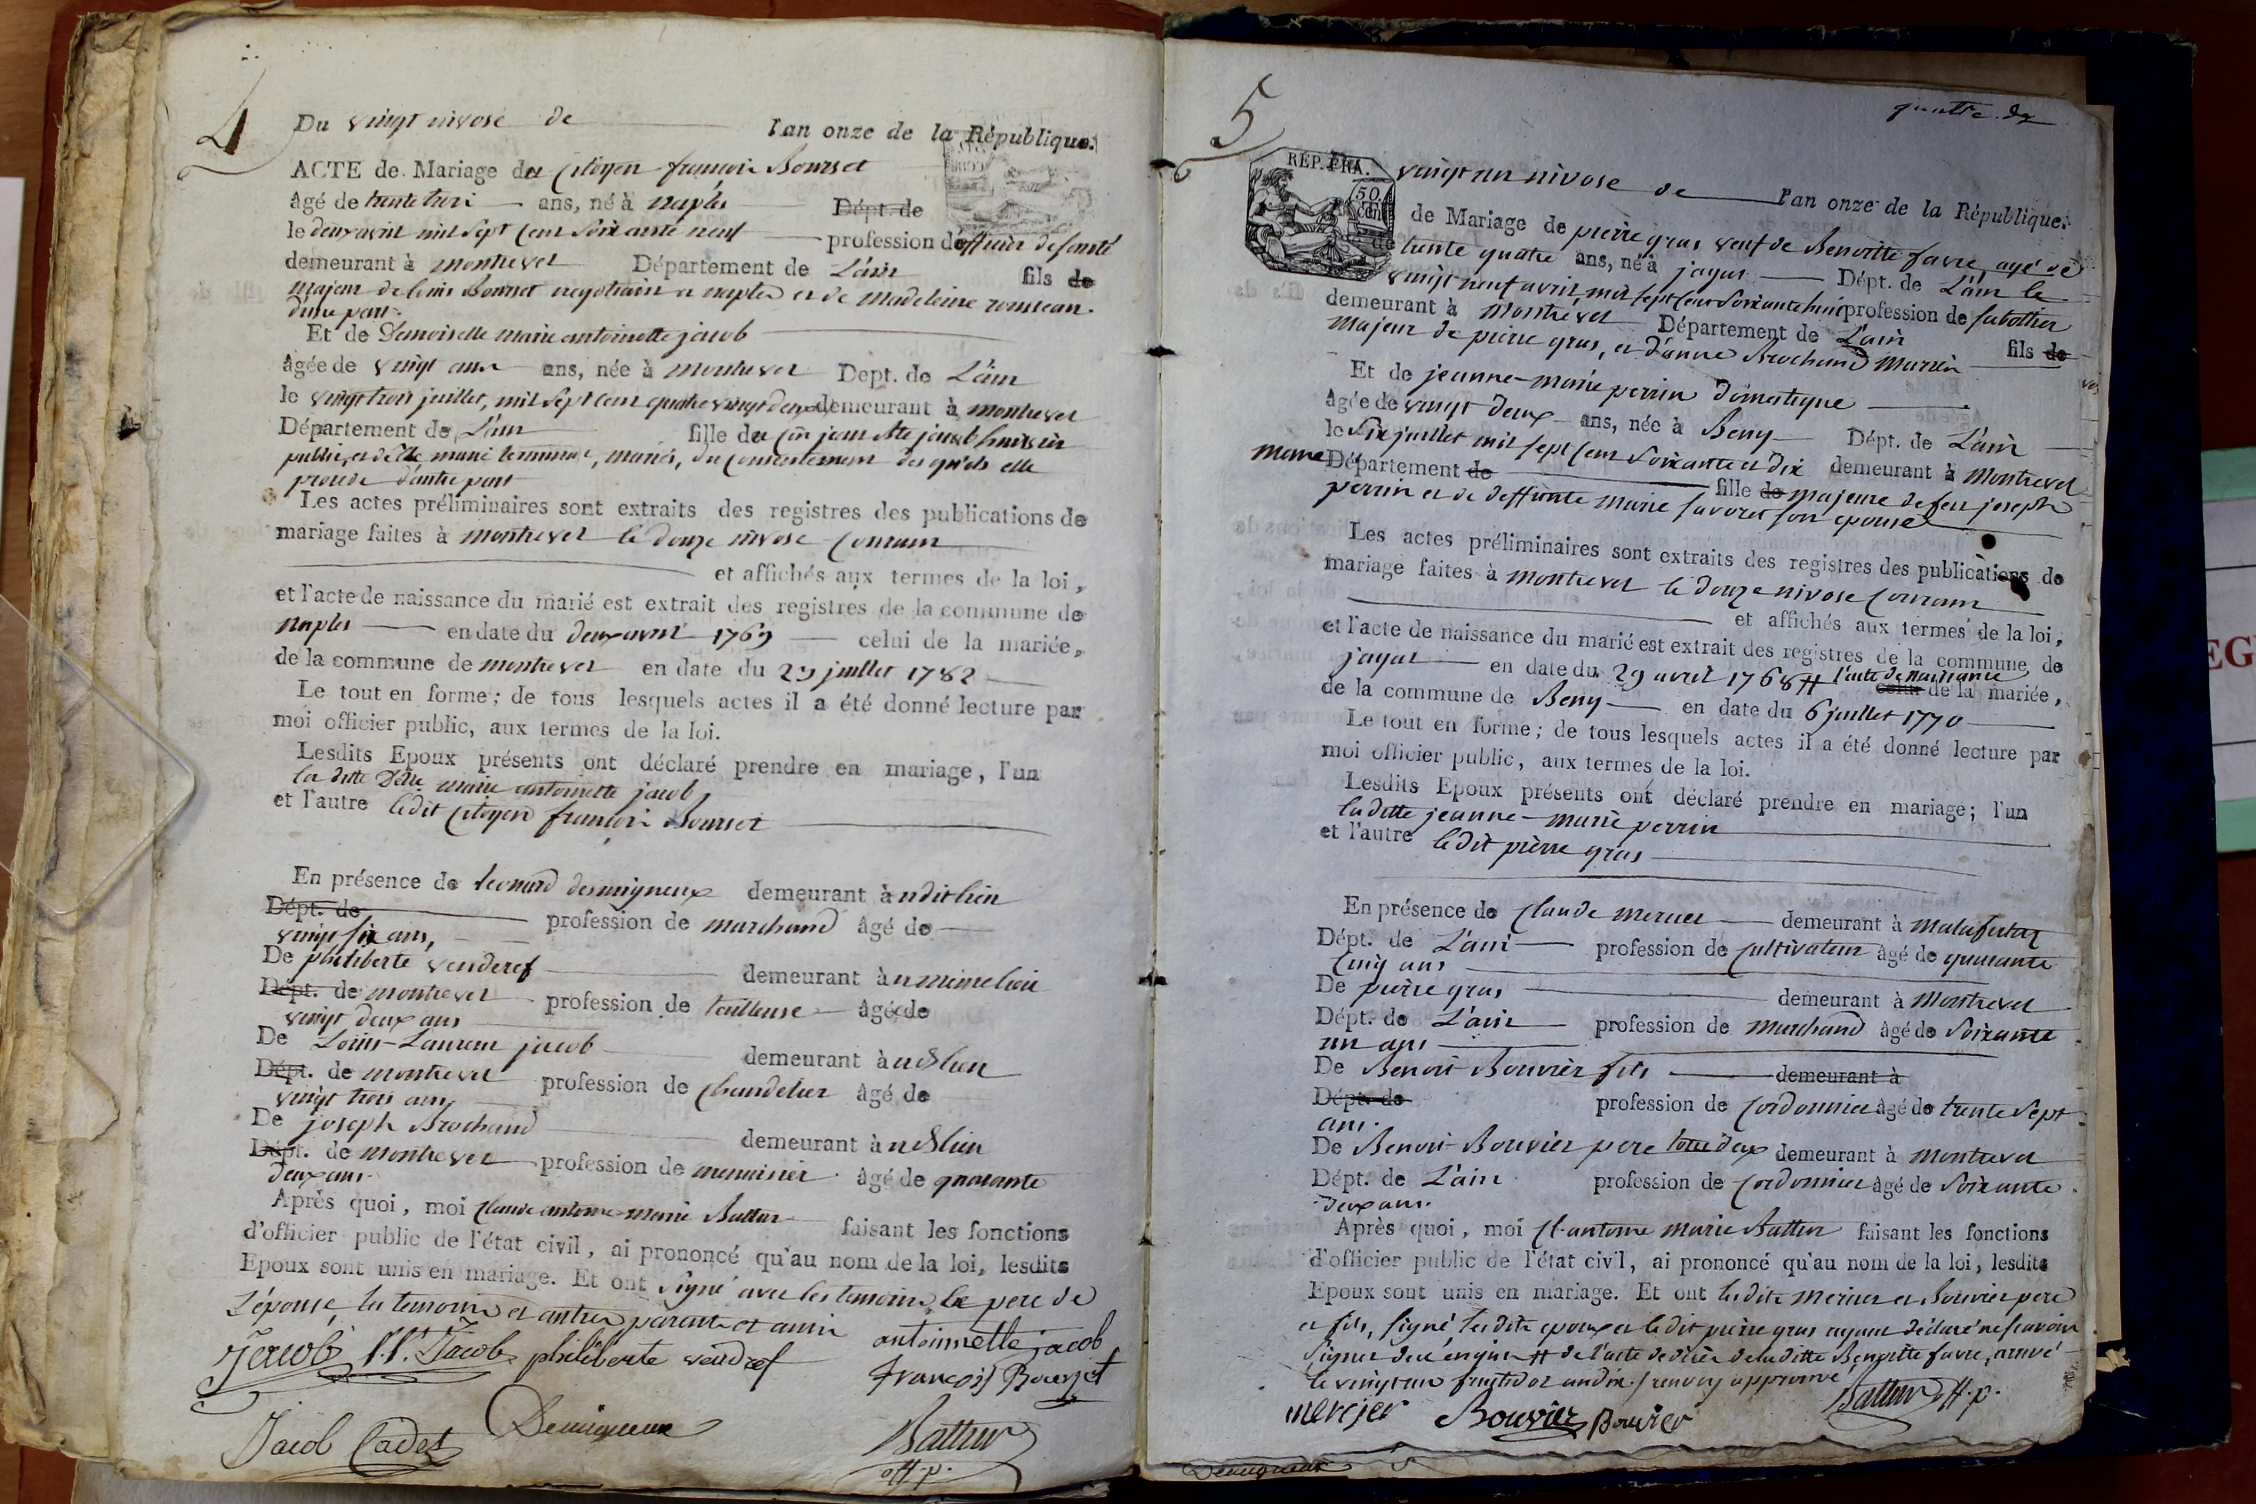 4
Du vingt nivose de l'an onze de la République.
ACTE de Mariage du Citoyen françois Bourset
âgé de trente trois ans, né à naples Dépt. de
le deux avril mil sept cent soixante neuf profession d'officier de santé
demeurant à montrevel Département de L'ain fils de
majeur de louis Bourset negotiant a naples et de madeleine rousseau.
d'une part.
Et de Demoiselle marie antoinette jacob
âgée de vingt ans ans, née à montrevel Dept. de L'ain
le vingt trois juillet, mil sept cent quatre vingt deux demeurant à montrevel
Département de L'ain fille du Cen jean Bte jacob huissier
public, et de marie, mariés, du consentement desquels elle
procede d'autre part
Les actes préliminaires sont extraits des registres des publications de
mariage faites à montrevel le douze nivose Courant
et affichés aux termes de la loi,
et l'acte de naissance du marié est extrait des registres de la commune de
naples en date du deux avril 1769 celui de la mariée,
de la commune de montrevel en date du 23 juillet 1782
Le tout en forme; de tous lesquels actes il a été donné lecture par
moi officier public, aux termes de la loi.
Lesdits Epoux présents ont déclaré prendre en mariage, l'un
la ditte Delle marie antoinette jacob
et l'autre ledit Citoyen françois Bourset
En présence de leonard desmigneux demeurant à udit lieu
Dépt. de profession de marchand âgé de
vingt six ans,
De philiberte vendref demeurant à u même lieu
Dépt. de montrevel profession de tailleuse âgée de
vingt deux ans
De Louis-Laurent jacob demeurant à udt lieu
Dépt. de montrevel profession de Chandelier âgé de
vingt trois ans
De joseph Brochand demeurant à udt lieu
Dépt. de montrevel profession de menuisier âgé de quarante
deux ans.
Après quoi, moi Claude antoine marie Battur faisant les fonctions
d'officier public de l'état civil, ai prononcé qu'au nom de la loi, lesdits
Epoux sont unis en mariage. Et ont signé avec les temoins, le pere de
L'épouse, les temoins et autres parants et amis
Jacob L. L. Jacob philiberte vendref antoinette jacob
françois Bourset
Jacob Cadet Demigneux Battur
off. p.
quatre. dx
5
REP. FRA.
50. cent
vingt un nivose de l'an onze de la République.
de Mariage de pierre gras veuf de Benoitte favre, agé de
trente quatre ans, né à jayat Dépt. de L'ain le
vingt neuf avril, mil sept cent soixante huit profession de sabottier
demeurant à Montrevel Département de L'ain fils de
majeur de pierre gras, et d'anne Brochand Mariés
Et de jeanne-marie perrin domestique
âgée de vingt deux ans, née à Beny Dépt. de L'ain
le six juillet mil sept cent soixante et dix demeurant à Montrevel
meme Département de fille de majeure de feu joseph
perrin et de deffunte marie favoret son epouse
Les actes préliminaires sont extraits des registres des publications de
mariage faites à montrevel le douze nivose Courant
et affichés aux termes de la loi,
et l'acte de naissance du marié est extrait des registres de la commune de
jayat en date du 29 avril 1768 # l'acte de naissance celui de la mariée,
de la commune de Beny en date du 6 juillet 1770
Le tout en forme; de tous lesquels actes il a été donné lecture par
moi officier public, aux termes de la loi.
Lesdits Epoux présents ont déclaré prendre en mariage; l'un
la ditte jeanne-marie perrin
et l'autre ledit pierre gras
En présence de Claude mercier demeurant à malafretaz
Dépt. de L'ain profession de Cultivateur âgé de quarante
Cinq ans
De pierre gras demeurant à Montrevel
Dépt. de L'ain profession de marchand âgé de Soixante
un ans
De Benoit Bouvier fils demeurant à
Dépt. de profession de Cordonnier âgé de trente sept
ans.
De Benoit Bouvier pere tous deux demeurant à montrevel
Dépt. de L'ain profession de Cordonnier âgé de Soixante
deux ans.
Après quoi, moi Cl. antoine Marie Battur faisant les fonctions
d'officier public de l'état civil, ai prononcé qu'au nom de la loi, lesdits
Epoux sont unis en mariage. Et ont lesdits Mercier et Bouvier pere
et fils, signé lesdits epoux et ledit pierre gras ayant déclaré ne scavoir
signer de ce enquis # de l'acte de décès de laditte Benoitte favre, arrivé
le vingt un fructidor an dix. / renvoy approuvé
Battur off. p.
mercier Bouvier Bouvier
Demigneux